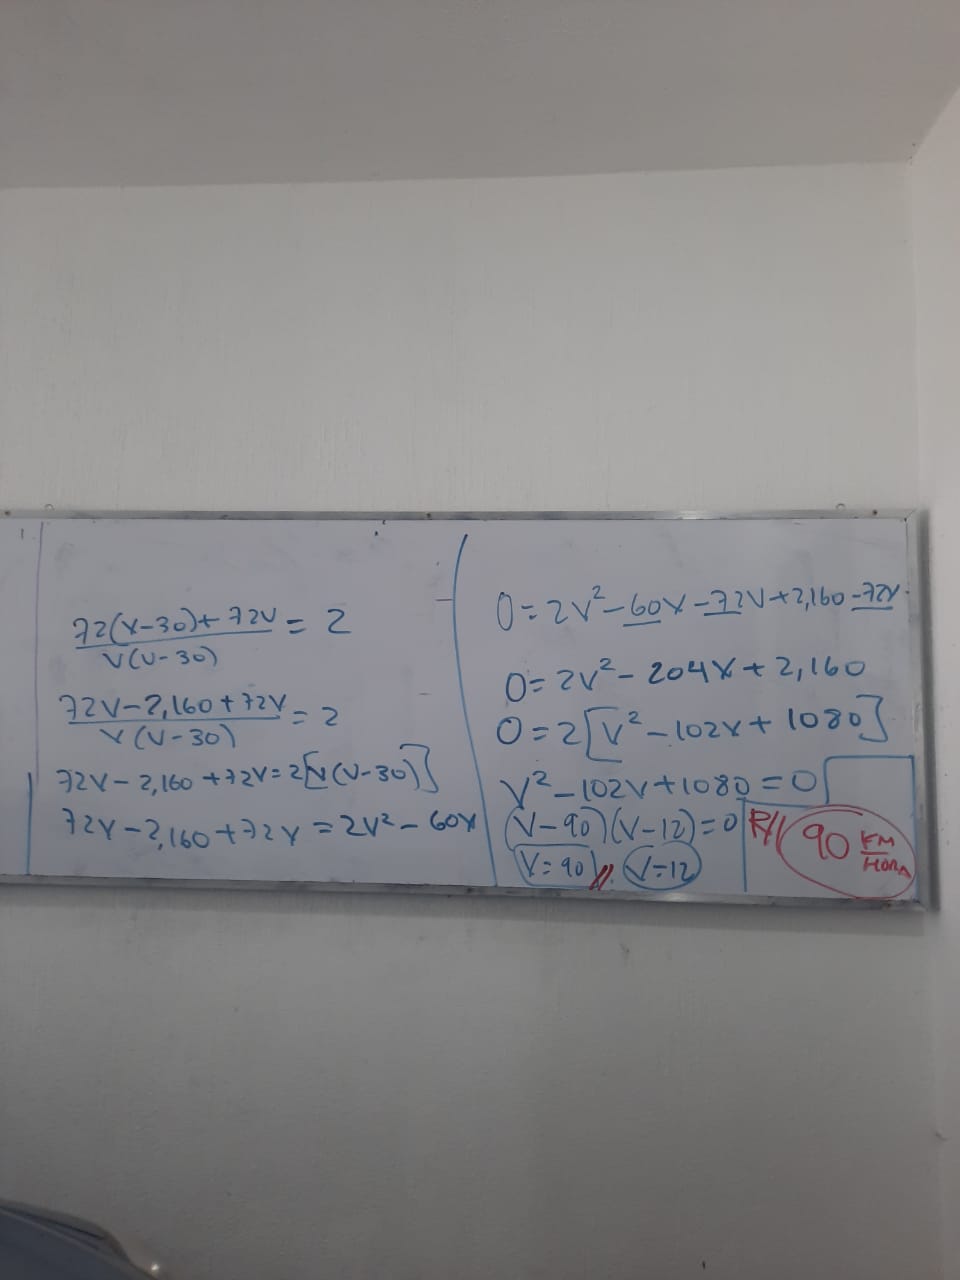 72(V-30)+72V = 2
V(V-30)
72V-2,160+72V = 2
V(V-30)
72V-2,160+72V=2[V(V-30)]
72V-2,160+72V=2V²-60V
0=2V²-60V-72V+2,160-72V
0=2V²-204V+2,160
0=2[V²-102V+1080]
V²-102V+1080=0
(V-90)(V-12)=0
V=90 //. V=12
R// 90 KM
HORA